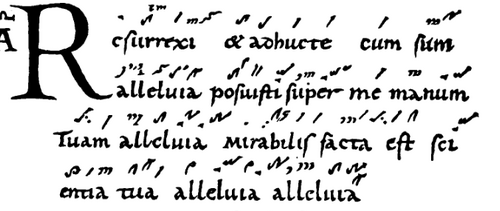 AP Resurrexi & adhucte cum sum
alleluia posuisti super me manum
Tuam alleluia mirabilis facta est sci
entia tua alleluia alleluia